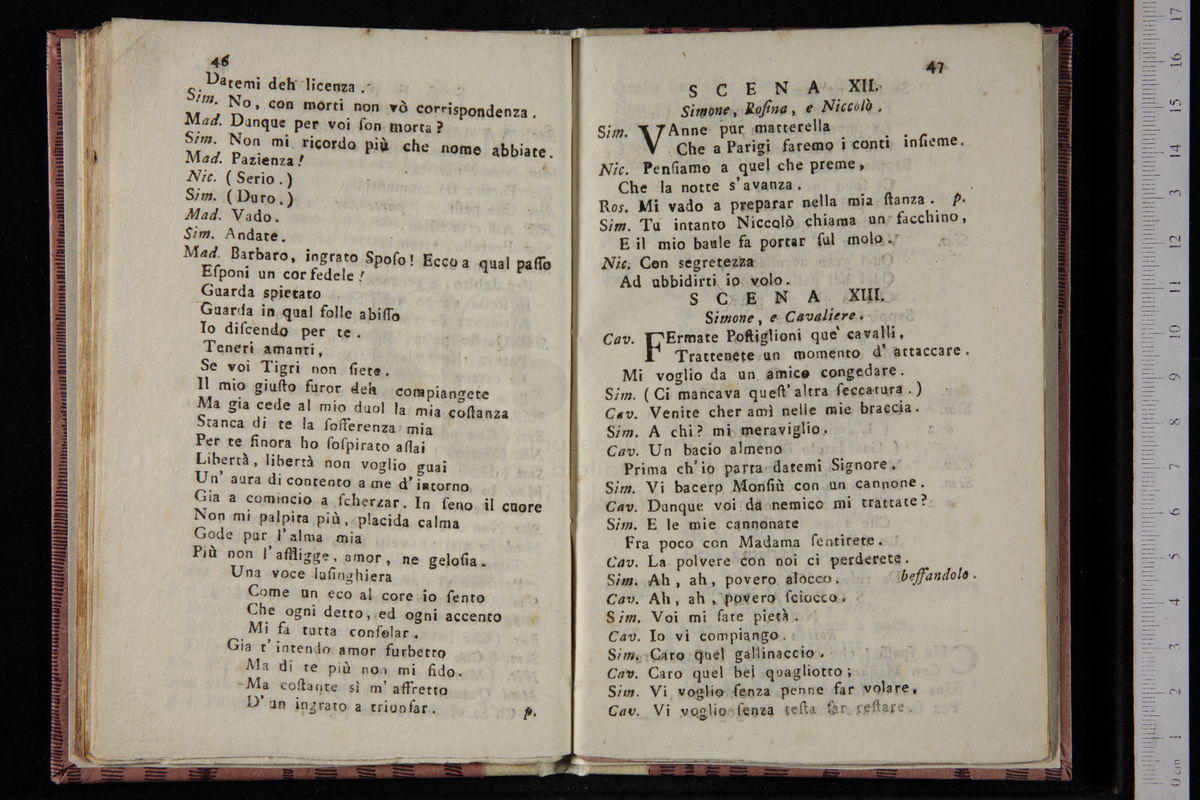 46
Datemi deh licenza.
Sim. No, con morti non vò corrispondenza.
Mad. Dunque per voi ſon morta?
Sim. Non mi ricordo più che nome abbiate.
Mad. Pazienza!
Nic. (Serio.)
Sim. (Duro.)
Mad. Vado.
Sim. Andate.
Mad. Barbaro, ingrato Spoſo! Ecco a qual paſſo
Eſponi un cor fedele!
Guarda spietato
Guarda in qual folle abiſſo
Io diſcendo per te.
Teneri amanti,
Se voi Tigri non ſiete.
Il mio giuſto furor deh compiangete
Ma gia cede al mio duol la mia coſtanza
Stanca di te la ſofferenza mia
Per te finora ho ſoſpirato aſſai
Libertà, libertà non voglio guai
Un' aura di contento a me d' intorno
Gia a comincio a ſcherzar. In ſeno il cuore
Non mi palpita più, placida calma
Gode pur l' alma mia
Più non l' affligge, amor, ne geloſia.
Una voce luſinghiera
Come un eco al core io ſento
Che ogni detto, ed ogni accento
Mi fa tutta conſolar.
Gia t' intendo amor furbetto
Ma di te più non mi fido.
Ma coſtante sì m' affretto
D' un ingrato a trionfar. p.
47
SCENA XII.
Simone, Roſina, e Niccolò.
Sim. VAnne pur matterella
Che a Parigi faremo i conti inſieme.
Nic. Penſiamo a quel che preme,
Che la notte s' avanza.
Ros. Mi vado a preparar nella mia ſtanza. p.
Sim. Tu intanto Niccolò chiama un facchino,
E il mio baule fa portar ſul molo.
Nic. Con segretezza
Ad ubbidirti io volo.
SCENA XIII.
Simone, e Cavaliere.
Cav. FErmate Poſtiglioni que' cavalli,
Trattenete un momento d' attaccare.
Mi voglio da un amico congedare.
Sim. (Ci mancava queſt' altra ſeccatura.)
Cav. Venite cher amì nelle mie braccia.
Sim. A chi? mi meraviglio.
Cav. Un bacio almeno
Prima ch' io parta datemi Signore.
Sim. Vi bacero Monſiù con un cannone.
Cav. Dunque voi da nemico mi trattate?
Sim. E le mie cannonate
Fra poco con Madama ſentirete.
Cav. La polvere con noi ci perderete.
Sim. Ah, ah, povero alocco. beffandolo.
Cav. Ah, ah, povero ſciocco.
Sim. Voi mi fate pietà.
Cav. Io vi compiango.
Sim. Caro quel gallinaccio.
Cav. Caro quel bel quagliotto;
Sim. Vi voglio ſenza penne far volare,
Cav. Vi voglio ſenza teſta far reſtare.
0 cm 1 2 3 4 5 6 7 8 9 10 11 12 13 14 15 16 17